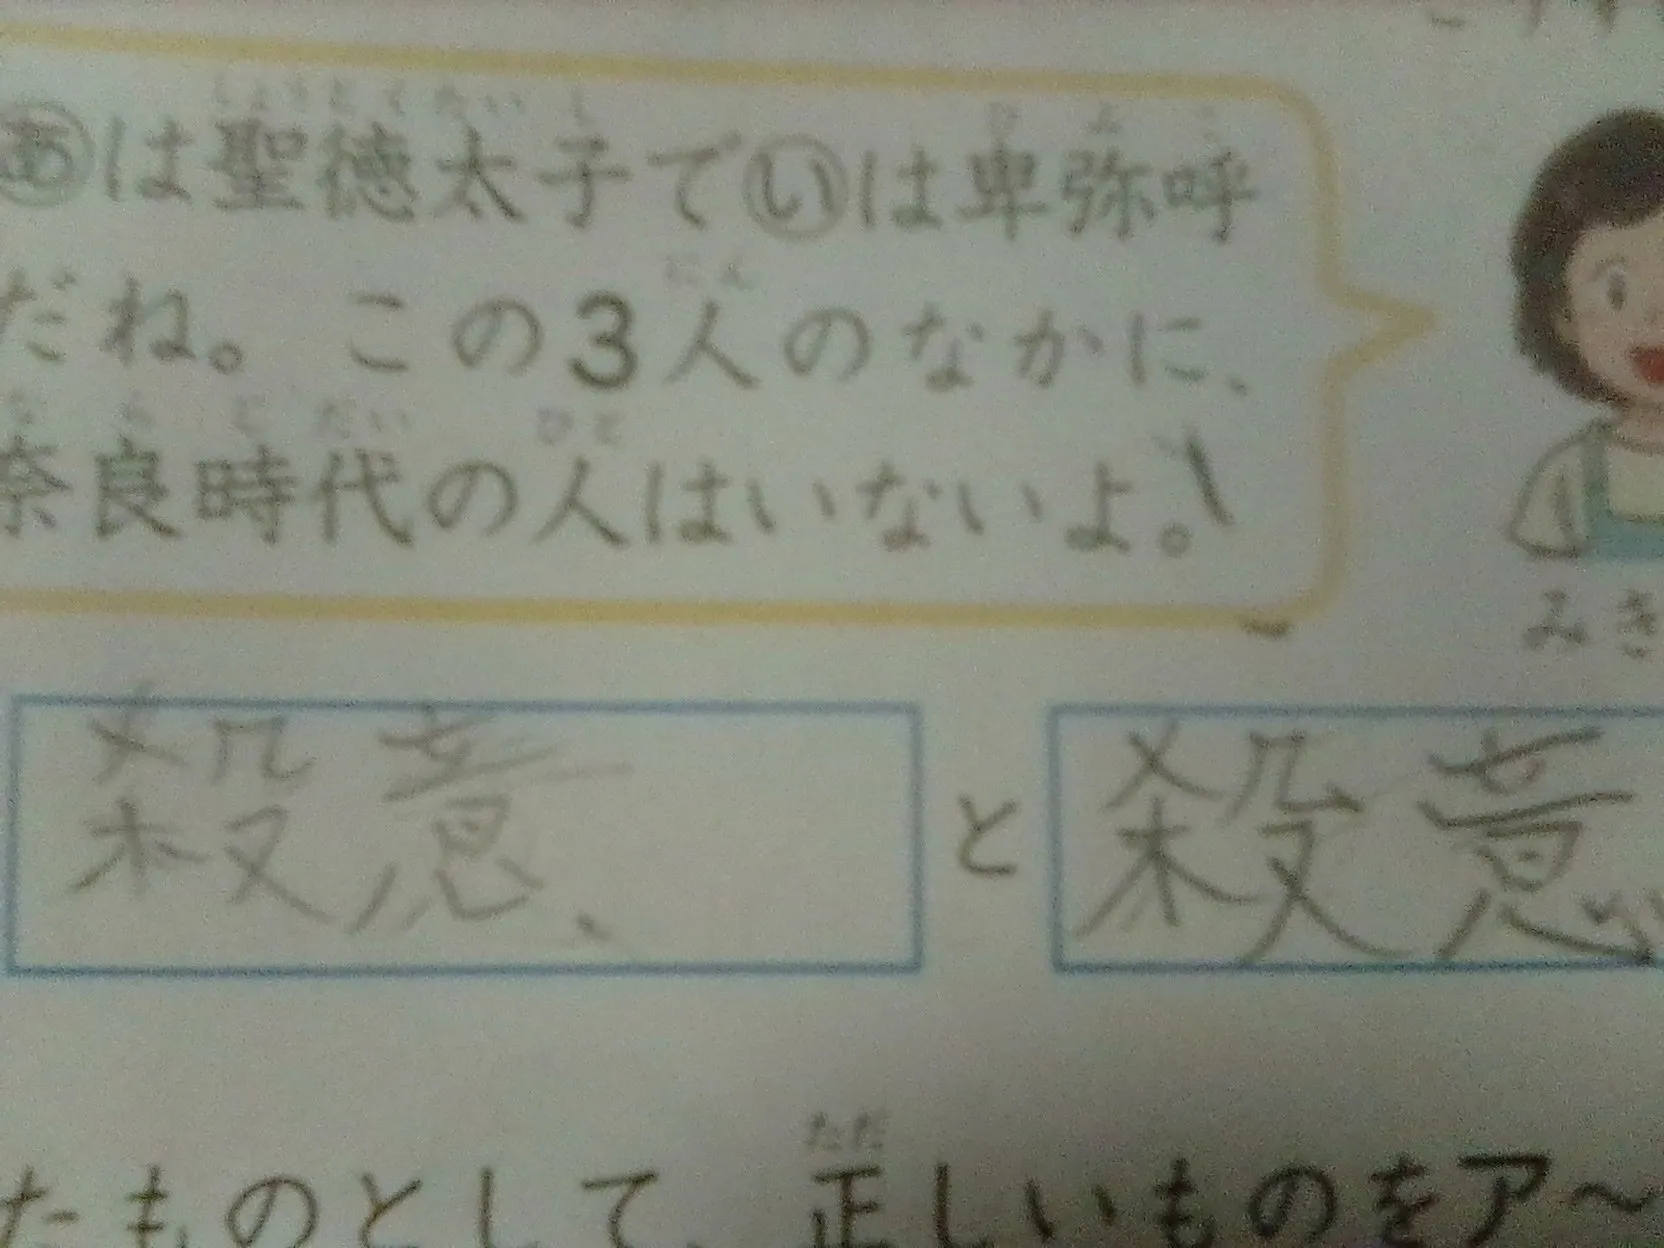 あは聖徳太子でいは卑弥呼
だね。この3人のなかに、
奈良時代の人はいないよ。
みき
殺意 と 殺意
たものとして、正しいものをア〜